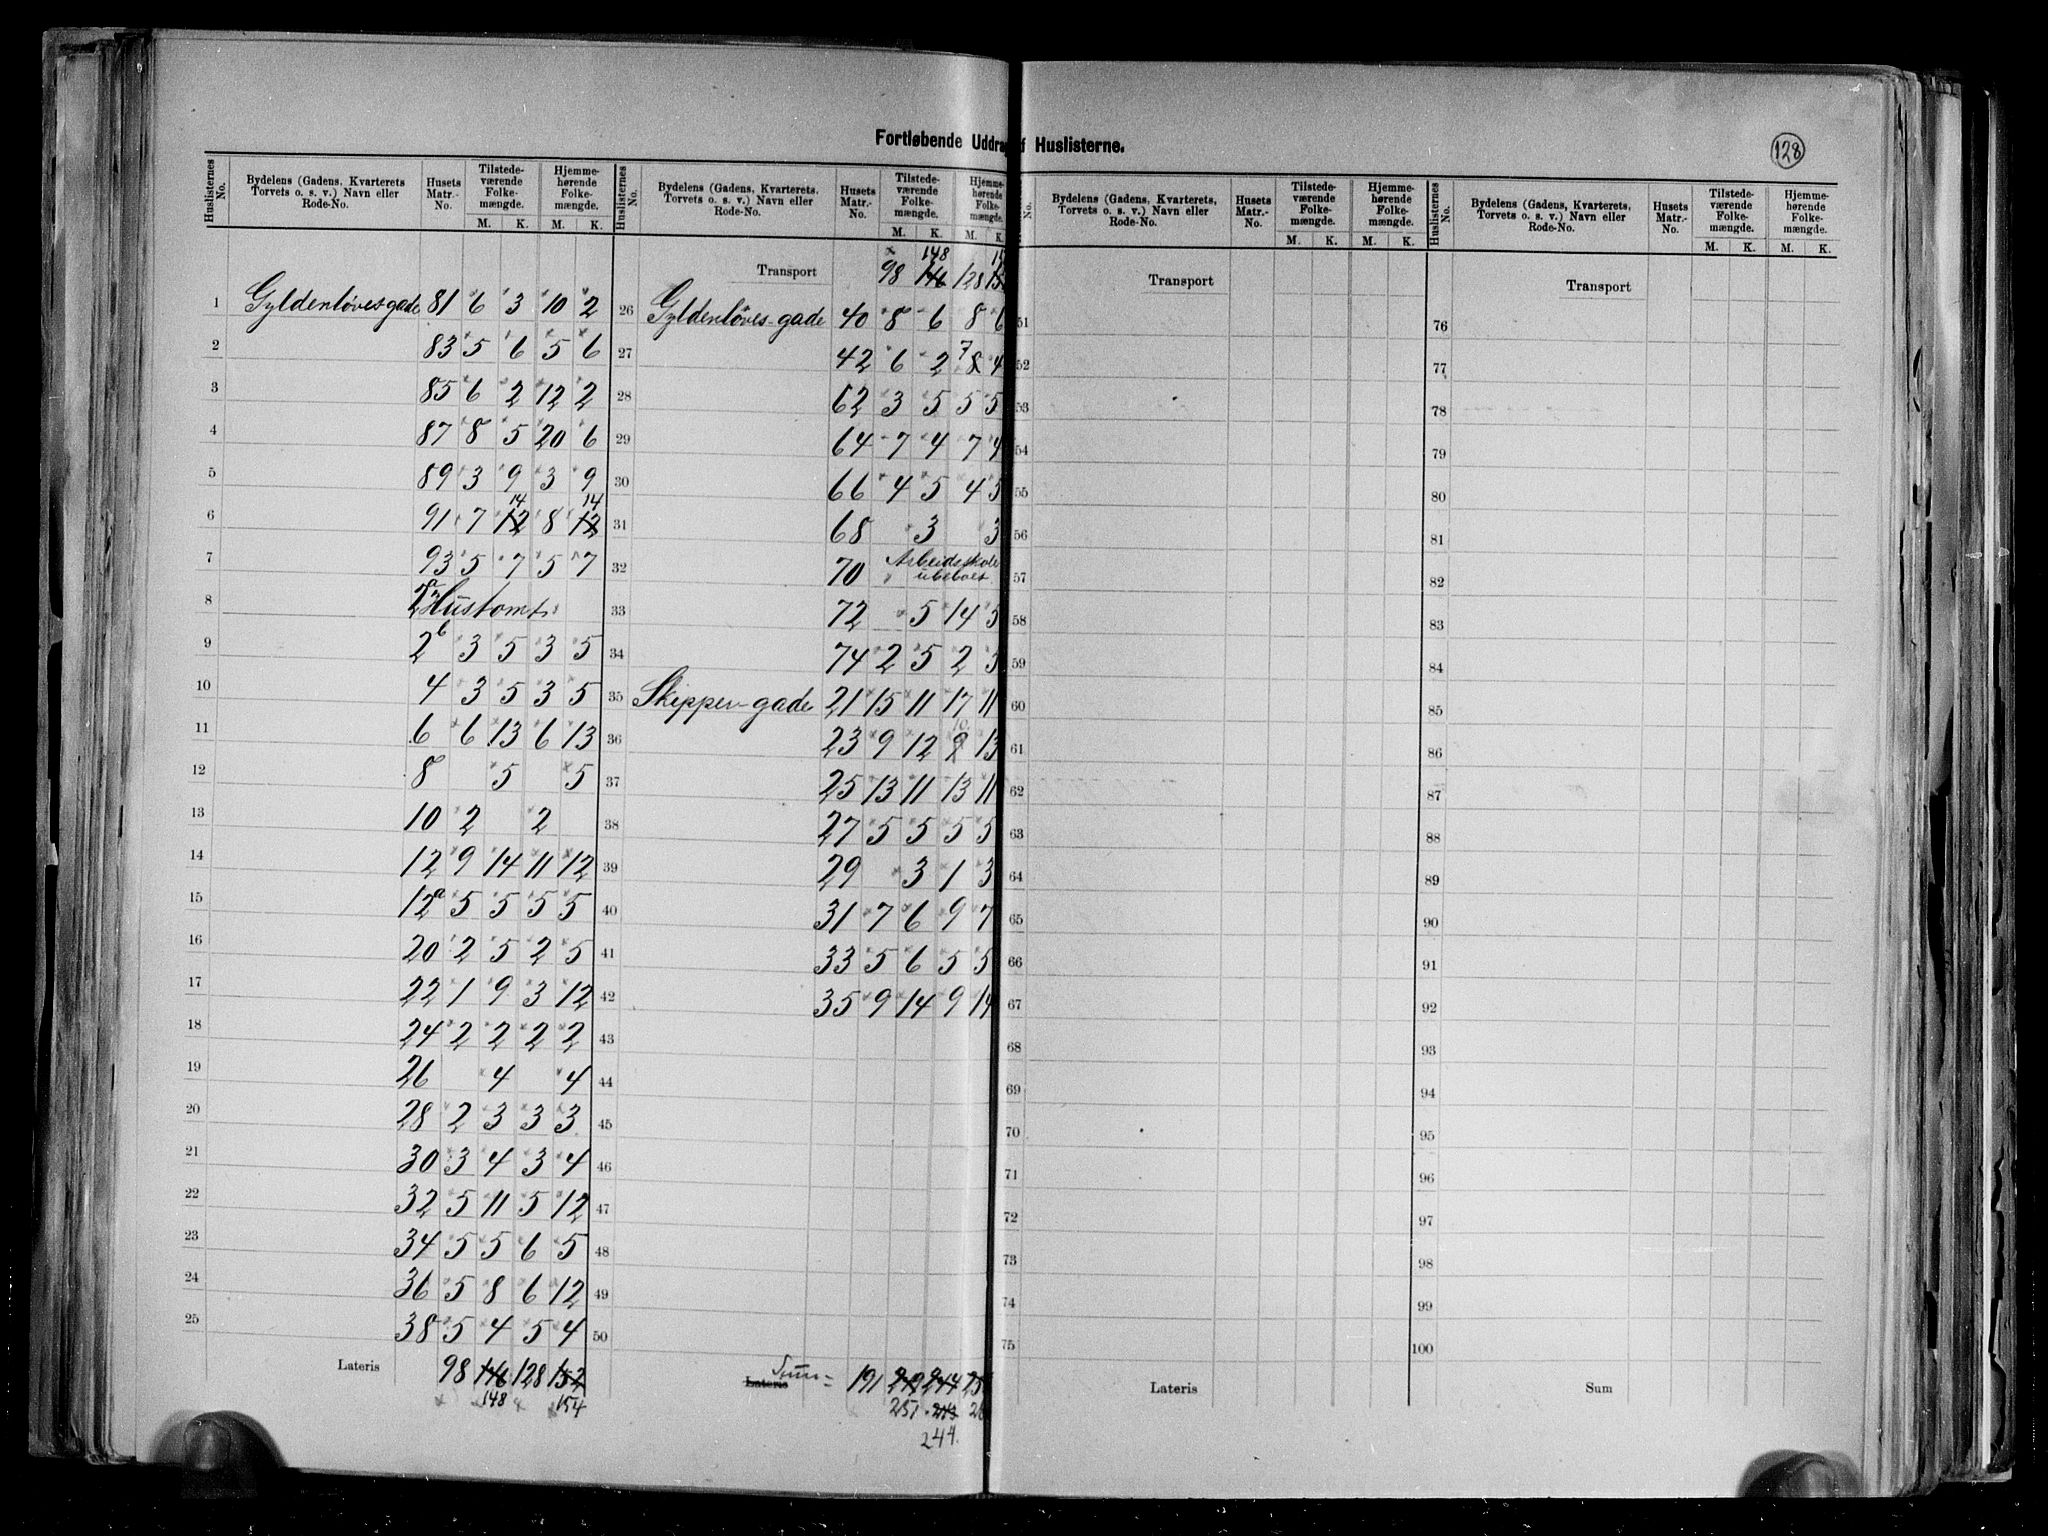 Fortløbende Uddrag af Huslisterne.
128
Huslisternes No. Bydelens (Gadens, Kvarterets Torvets o. s. v.) Navn eller Rode-No. Husets Matr.-No. Tilstedeværende Folkemængde. M. K. Hjemmehørende Folkemængde. M. K.
1 Gyldenløvesgade 81 6 3 10 2
2 83 5 6 5 6
3 85 6 2 12 2
4 87 8 5 20 6
5 89 3 9 3 9
6 91 7 12 14 8 12 14
7 93 5 7 5 7
8 2a Hustomt
9 2b 3 5 3 5
10 4 3 5 3 5
11 6 6 13 6 13
12 8 5 5
13 10 2 2
14 12 9 14 11 12
15 12a 5 5 5 5
16 20 2 5 2 5
17 22 1 9 3 12
18 24 2 2 2 2
19 26 4 4
20 28 2 3 3 3
21 30 3 4 3 4
22 32 5 11 5 12
23 34 5 5 6 5
24 36 5 8 6 12
25 38 5 4 5 4
Lateris 98 146 128 152
148 154
Huslisternes No. Bydelens (Gadens, Kvarterets, Torvets o. s. v.) Navn eller Rode-No. Husets Matr.-No. Tilstedeværende Folkemængde. M. K. Hjemmehørende Folkemængde. M. K.
148
Transport 98 146 128
26 Gyldenløves-gade 40 8 6 8 6
27 42 6 2 8 7 4
28 62 3 5 5 5
29 64 7 4 7 4
30 66 4 5 4 5
31 68 3 3
32 70 Arbeidsskole ubeboet
33 72 5 14 5
34 74 2 5 2 5
35 Skipper-gade 21 15 11 17 11
36 23 9 12 9 10 13
37 25 13 11 13 11
38 27 5 5 5 5
39 29 3 1 3
40 31 7 6 9 7
41 33 5 6 5 5
42 35 9 14 9 14
43
44
45
46
47
48
49
50
Lateris Sum = 191 249 244
251 243
244
No. Bydelens (Gadens, Kvarterets, Torvets o. s. v.) Navn eller Rode-No. Husets Matr.-No. Tilstedeværende Folkemængde. M. K. Hjemmehørende Folkemængde. M. K.
Transport
51
52
53
54
55
56
57
58
59
60
61
62
63
64
65
66
67
68
69
70
71
72
73
74
75
Lateris
Huslisternes No. Bydelens (Gadens, Kvarterets, Torvets o. s. v.) Navn eller Rode-No. Husets Matr.-No. Tilstedeværende Folkemængde. M. K. Hjemmehørende Folkemængde. M. K.
Transport
76
77
78
79
80
81
82
83
84
85
86
87
88
89
90
91
92
93
94
95
96
97
98
99
100
Sum